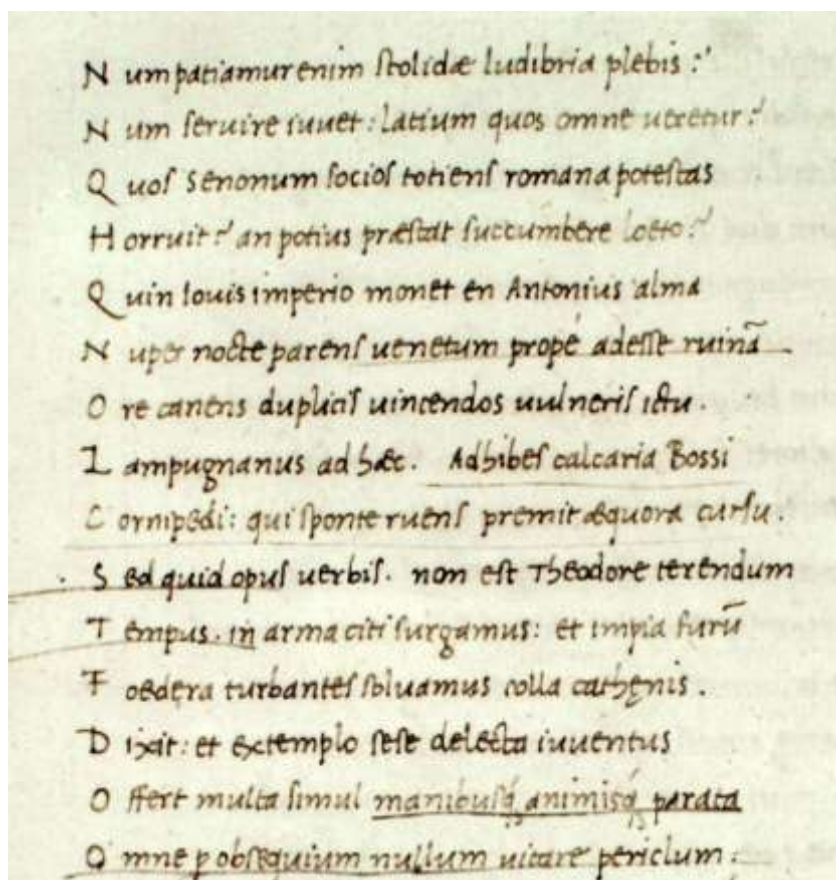 N um patiamur enim stolidæ ludibria plebis?
N um seruire iuuet: latium quos omne ueretur?
Q uos Senonum socios totiens romana potestas
H orruit? an potius præstat succumbere loeto?
Q uin Iouis imperio monet en Antonius alma
N uper nocte parens uenetum propé adesse ruinā
O re canens duplicis uincendos uulneris ictu.
L ampugnanus ad hæc. Adhibes calcaria Bossi
C ornipedi: qui sponte ruens premit æquora cursu.
S ed quid opus uerbis. non est Theodore terendum
T empus. in arma citi surgamus: et impia furū
F oedera turbantes soluamus colla cathenis.
D ixit: et extemplo sese delecta iuuentus
O ffert multa simul manibusq́ animisq́ parata
O mne p obsequium nullum uitare periclum: